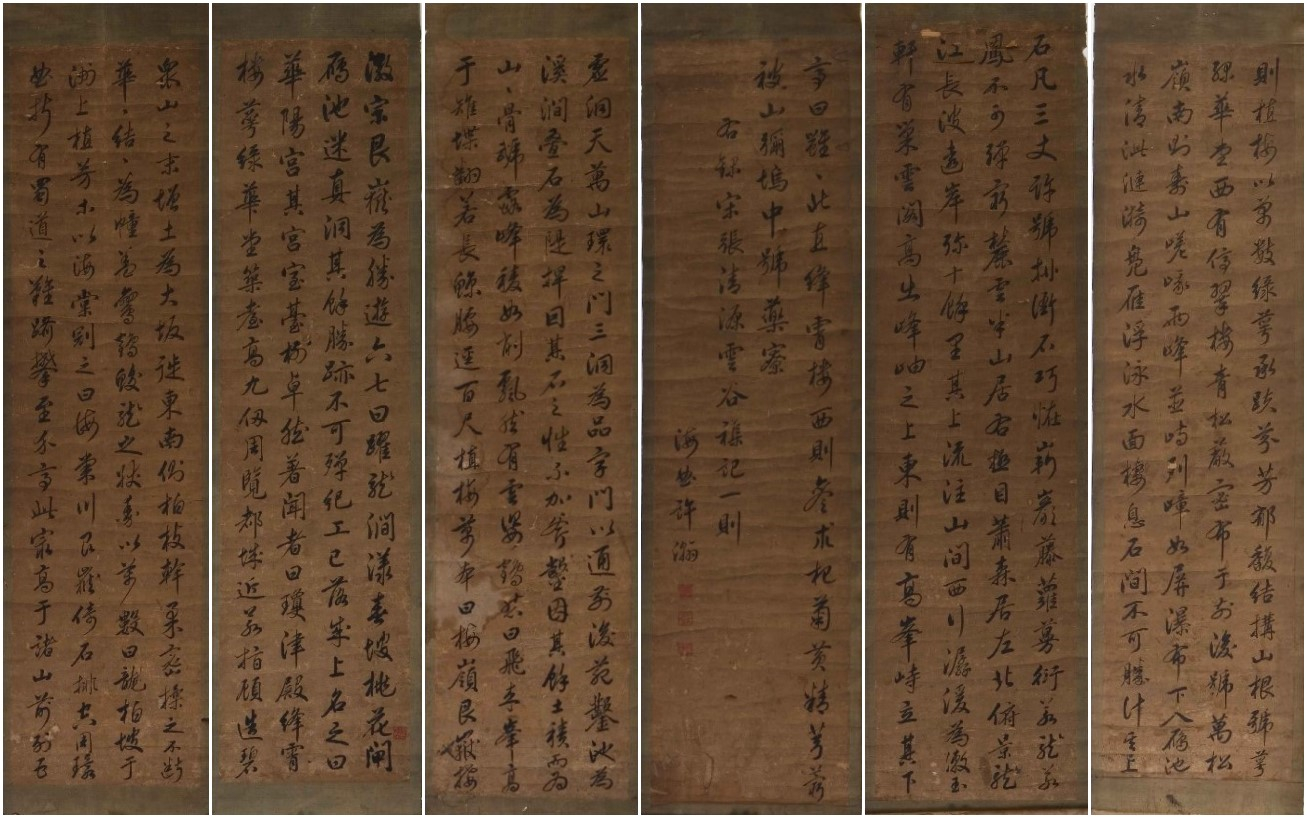 則植梅以萬數綠萼承趺芬芳郁馥結搆山根號萼
綠華堂西有倚翠樓青松蔽密布于前後號萬松
嶺南則壽山嵯峨兩峰並峙列嶂如屏瀑布下入雁池
水清泚漣漪鳧雁浮泳水面棲息石間不可勝計其上
石凡三丈許號排衙石巧怪嶄巖藤蘿蔓衍若龍若
鳳不可殫窮麓雲半山居右極目蕭森居左北俯景龍
江長波遠岸弥十餘里其上流注山間西行潺湲為漱玉
軒有巢雲閣高出峰岫之上東則有高峯峙立其下
亭曰雝、北直絳霄樓西則參朮杞菊黃精芎藭
被山彌塢中號藥寮
右錄宋張清源雲谷襍記一則
海曲許瀚
虛洞天萬山環之門三洞為品字門以通前後苑鑿池為
溪澗疊石為隄捍因其石之性不加斧鑿因其餘土積而為
山、骨露峰稜如削飄然有雲姿鶴態曰飛來峯高
于雉堞翻若長鯨腰逕百尺植梅萬本曰梅嶺艮嶽接
徽宗艮嶽為勝遊六七曰躍龍澗漾春坡桃花閘
雁池迷真洞其餘勝跡不可殫紀工已落成上名之曰
華陽宮其宮室臺榭卓然著聞者曰瓊津殿絳霄
樓萼綠華堂築臺高九仞周覽都城近若指顧造碧
泉山之末增土為大坂徙東南側柏枝幹柔密揉之不斷
華、結、為幢蓋鸞鶴蛟龍之狀動以萬數曰龍柏坡于
洲上植芳木以海棠冠之曰海棠川艮嶽倚石排空周環
曲折有蜀道之難躋攀至介亭此最高于諸山前列巨